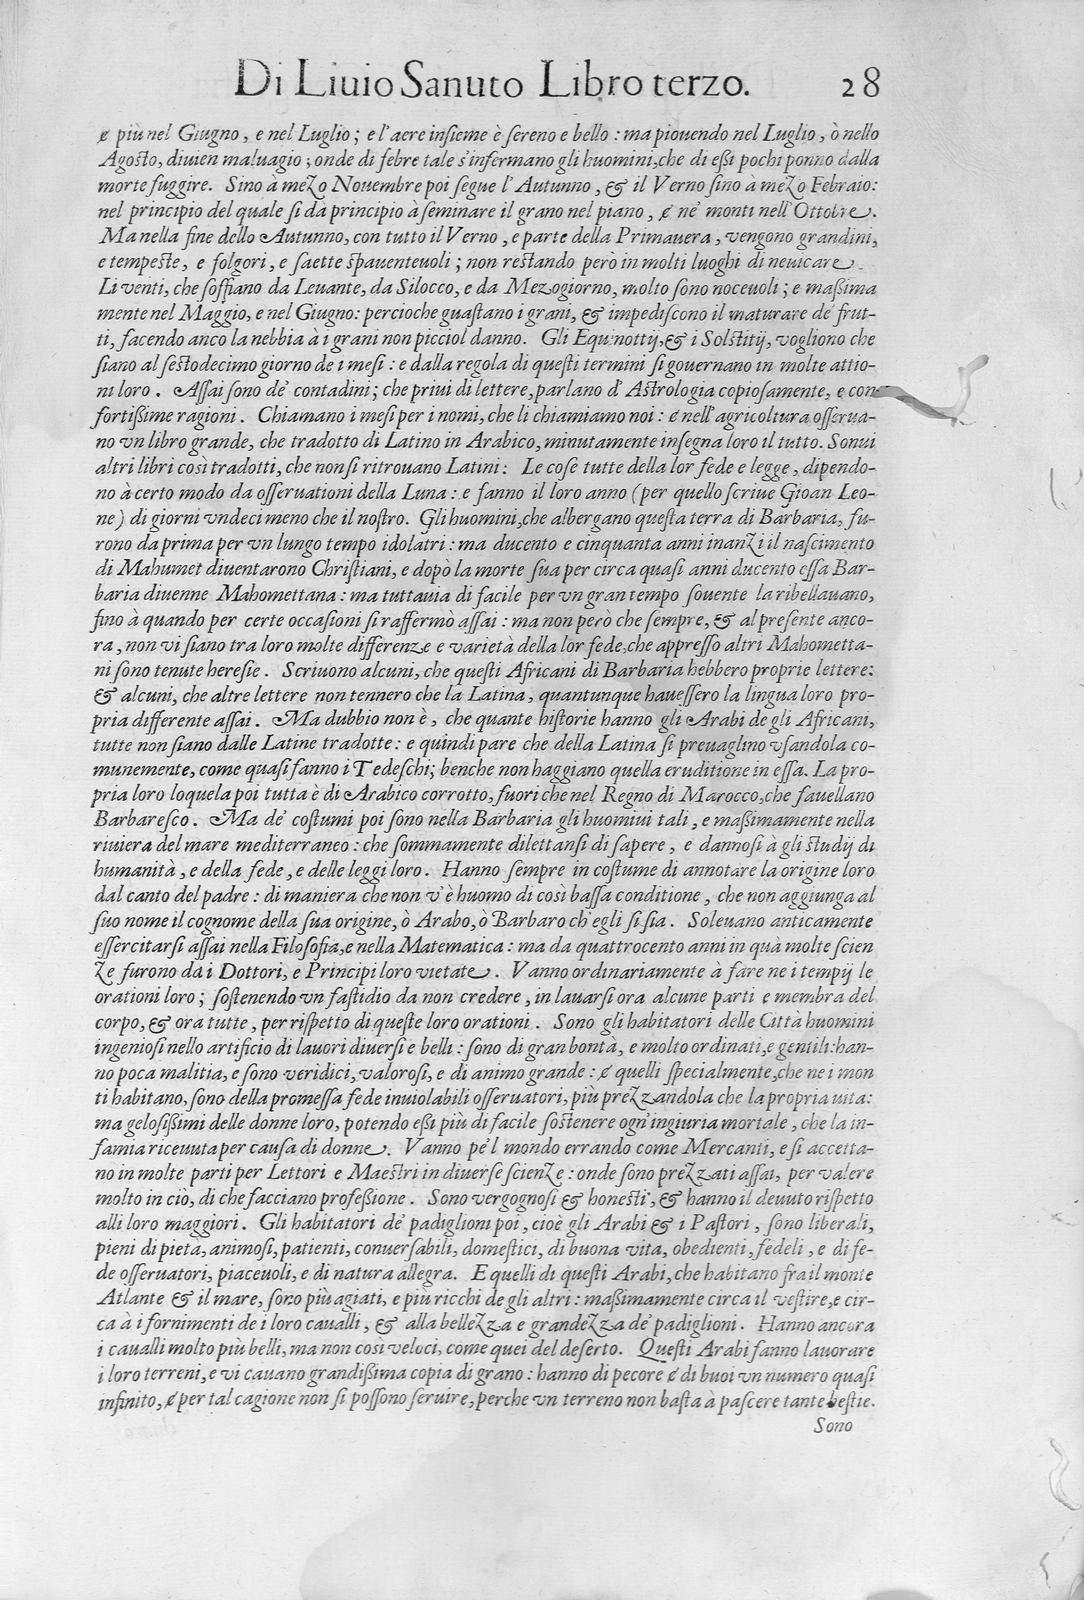 Di Liuio Sanuto Libro terzo. 28
& più nel Giugno, e nel Luglio; e l'aere insieme è sereno e bello: ma piouendo nel Luglio, ò nello
Agosto, diuien maluagio; onde di febre tale s'infermano gli huomini, che di eßi pochi ponno dalla
morte fuggire. Sino à mezo Nouembre poi segue l'Autunno, & il Verno sino à mezo Febraio:
nel principio del quale si dà principio à seminare il grano nel piano, & ne' monti nell'Ottobre.
Ma nella fine dello Autunno, con tutto il Verno, e parte della Primauera, vengono grandini,
e tempeste, e folgori, e saette spauenteuoli; non restando però in molti luoghi di neuicare.
Li venti, che soffiano da Leuante, da Silocco, e da Mezogiorno, molto sono noceuoli; e maßima
mente nel Maggio, e nel Giugno: percioche guastano i grani, & impediscono il maturare de' frut-
ti, facendo anco la nebbia à i grani non picciol danno. Gli Equinottij, & i Solstitij, vogliono che
siano al sestodecimo giorno de i mesi: e dalla regola di questi termini si gouernano in molte attio-
ni loro. Assai sono de' contadini; che priui di lettere, parlano d'Astrologia copiosamente, e con
fortißime ragioni. Chiamano i mesi per i nomi, che li chiamiamo noi: & nell'agricoltura osserua-
no vn libro grande, che tradotto di Latino in Arabico, minutamente insegna loro il tutto. Sonui
altri libri così tradotti, che non si ritrouano Latini: Le cose tutte della lor fede e legge, dipendo-
no à certo modo da osseruationi della Luna: e fanno il loro anno (per quello scriue Gioan Leo-
ne) di giorni vndeci meno che il nostro. Gli huomini, che albergano questa terra di Barbaria, fu-
rono da prima per vn lungo tempo idolatri: ma ducento e cinquanta anni inanzi il nascimento
di Mahumet diuentarono Christiani, e dopò la morte sua per circa quasi anni ducento essa Bar-
baria diuenne Mahomettana: ma tuttauia di facile per vn gran tempo souente la ribellauano,
fino à quando per certe occasioni si raffermò assai: ma non però che sempre, & al presente anco-
ra, non vi siano tra loro molte differenze e varietà della lor fede, che appresso altri Mahometta-
ni sono tenute heresie. Scriuono alcuni, che questi Africani di Barbaria hebbero proprie lettere:
& alcuni, che altre lettere non tennero che la Latina, quantunque hauessero la lingua loro pro-
pria differente assai. Ma dubbio non è, che quante historie hanno gli Arabi de gli Africani,
tutte non siano dalle Latine tradotte: e quindi pare che della Latina si preuaglino vsandola co-
munemente, come quasi fanno i Tedeschi; benche non haggiano quella eruditione in essa. La pro-
pria loro loquela poi tutta è di Arabico corrotto, fuori che nel Regno di Marocco, che fauellano
Barbaresco. Ma de' costumi poi sono nella Barbaria gli huomiui tali, e maßimamente nella
riuiera del mare mediterraneo: che sommamente dilettansi di sapere, e dannosi à gli studij di
humanità, e della fede, e delle leggi loro. Hanno sempre in costume di annotare la origine loro
dal canto del padre: di maniera che non v'è huomo di così bassa conditione, che non aggiunga al
suo nome il cognome della sua origine, ò Arabo, ò Barbaro ch'egli si sia. Soleuano anticamente
essercitarsi assai nella Filosofia, e nella Matematica: ma da quattrocento anni in quà molte scien
ze furono da i Dottori, e Principi loro vietate. Vanno ordinariamente à fare ne i tempij le
orationi loro; sostenendo vn fastidio da non credere, in lauarsi ora alcune parti e membra del
corpo, & ora tutte, per rispetto di queste loro orationi. Sono gli habitatori delle Città huomini
ingeniosi nello artificio di lauori diuersi e belli: sono di gran bontà, e molto ordinati, e gentili: han-
no poca malitia, e sono veridici, valorosi, e di animo grande: & quelli specialmente, che ne i mon
ti habitano, sono della promessa fede inuiolabili osseruatori, più prezzandola che la propria vita:
ma gelosissimi delle donne loro, potendo eßi più di facile sostenere ogn'ingiuria mortale, che la in-
famia riceuuta per causa di donne. Vanno pe'l mondo errando come Mercanti, e si accetta-
no in molte parti per Lettori e Maestri in diuerse scienze: onde sono prezzati assai, per valere
molto in ciò, di che facciano profeßione. Sono vergognosi & honesti, & hanno il deuuto rispetto
alli loro maggiori. Gli habitatori de' padiglioni poi, cioè gli Arabi & i Pastori, sono liberali,
pieni di pietà, animosi, patienti, conuersabili, domestici, di buona vita, obedienti, fedeli, e di fe-
de osseruatori, piaceuoli, e di natura allegra. E quelli di questi Arabi, che habitano fra il monte
Atlante & il mare, sono più agiati, e più ricchi de gli altri: maßimamente circa il vestire, e cir-
ca à i fornimenti de i loro caualli, & alla bellezza e grandezza de' padiglioni. Hanno ancora
i caualli molto più belli, ma non così veloci, come quei del deserto. Questi Arabi fanno lauorare
i loro terreni, e vi cauano grandißima copia di grano: hanno di pecore & di buoi vn numero quasi
infinito, & per tal cagione non si possono seruire, perche vn terreno non basta à pascere tante bestie.
Sono